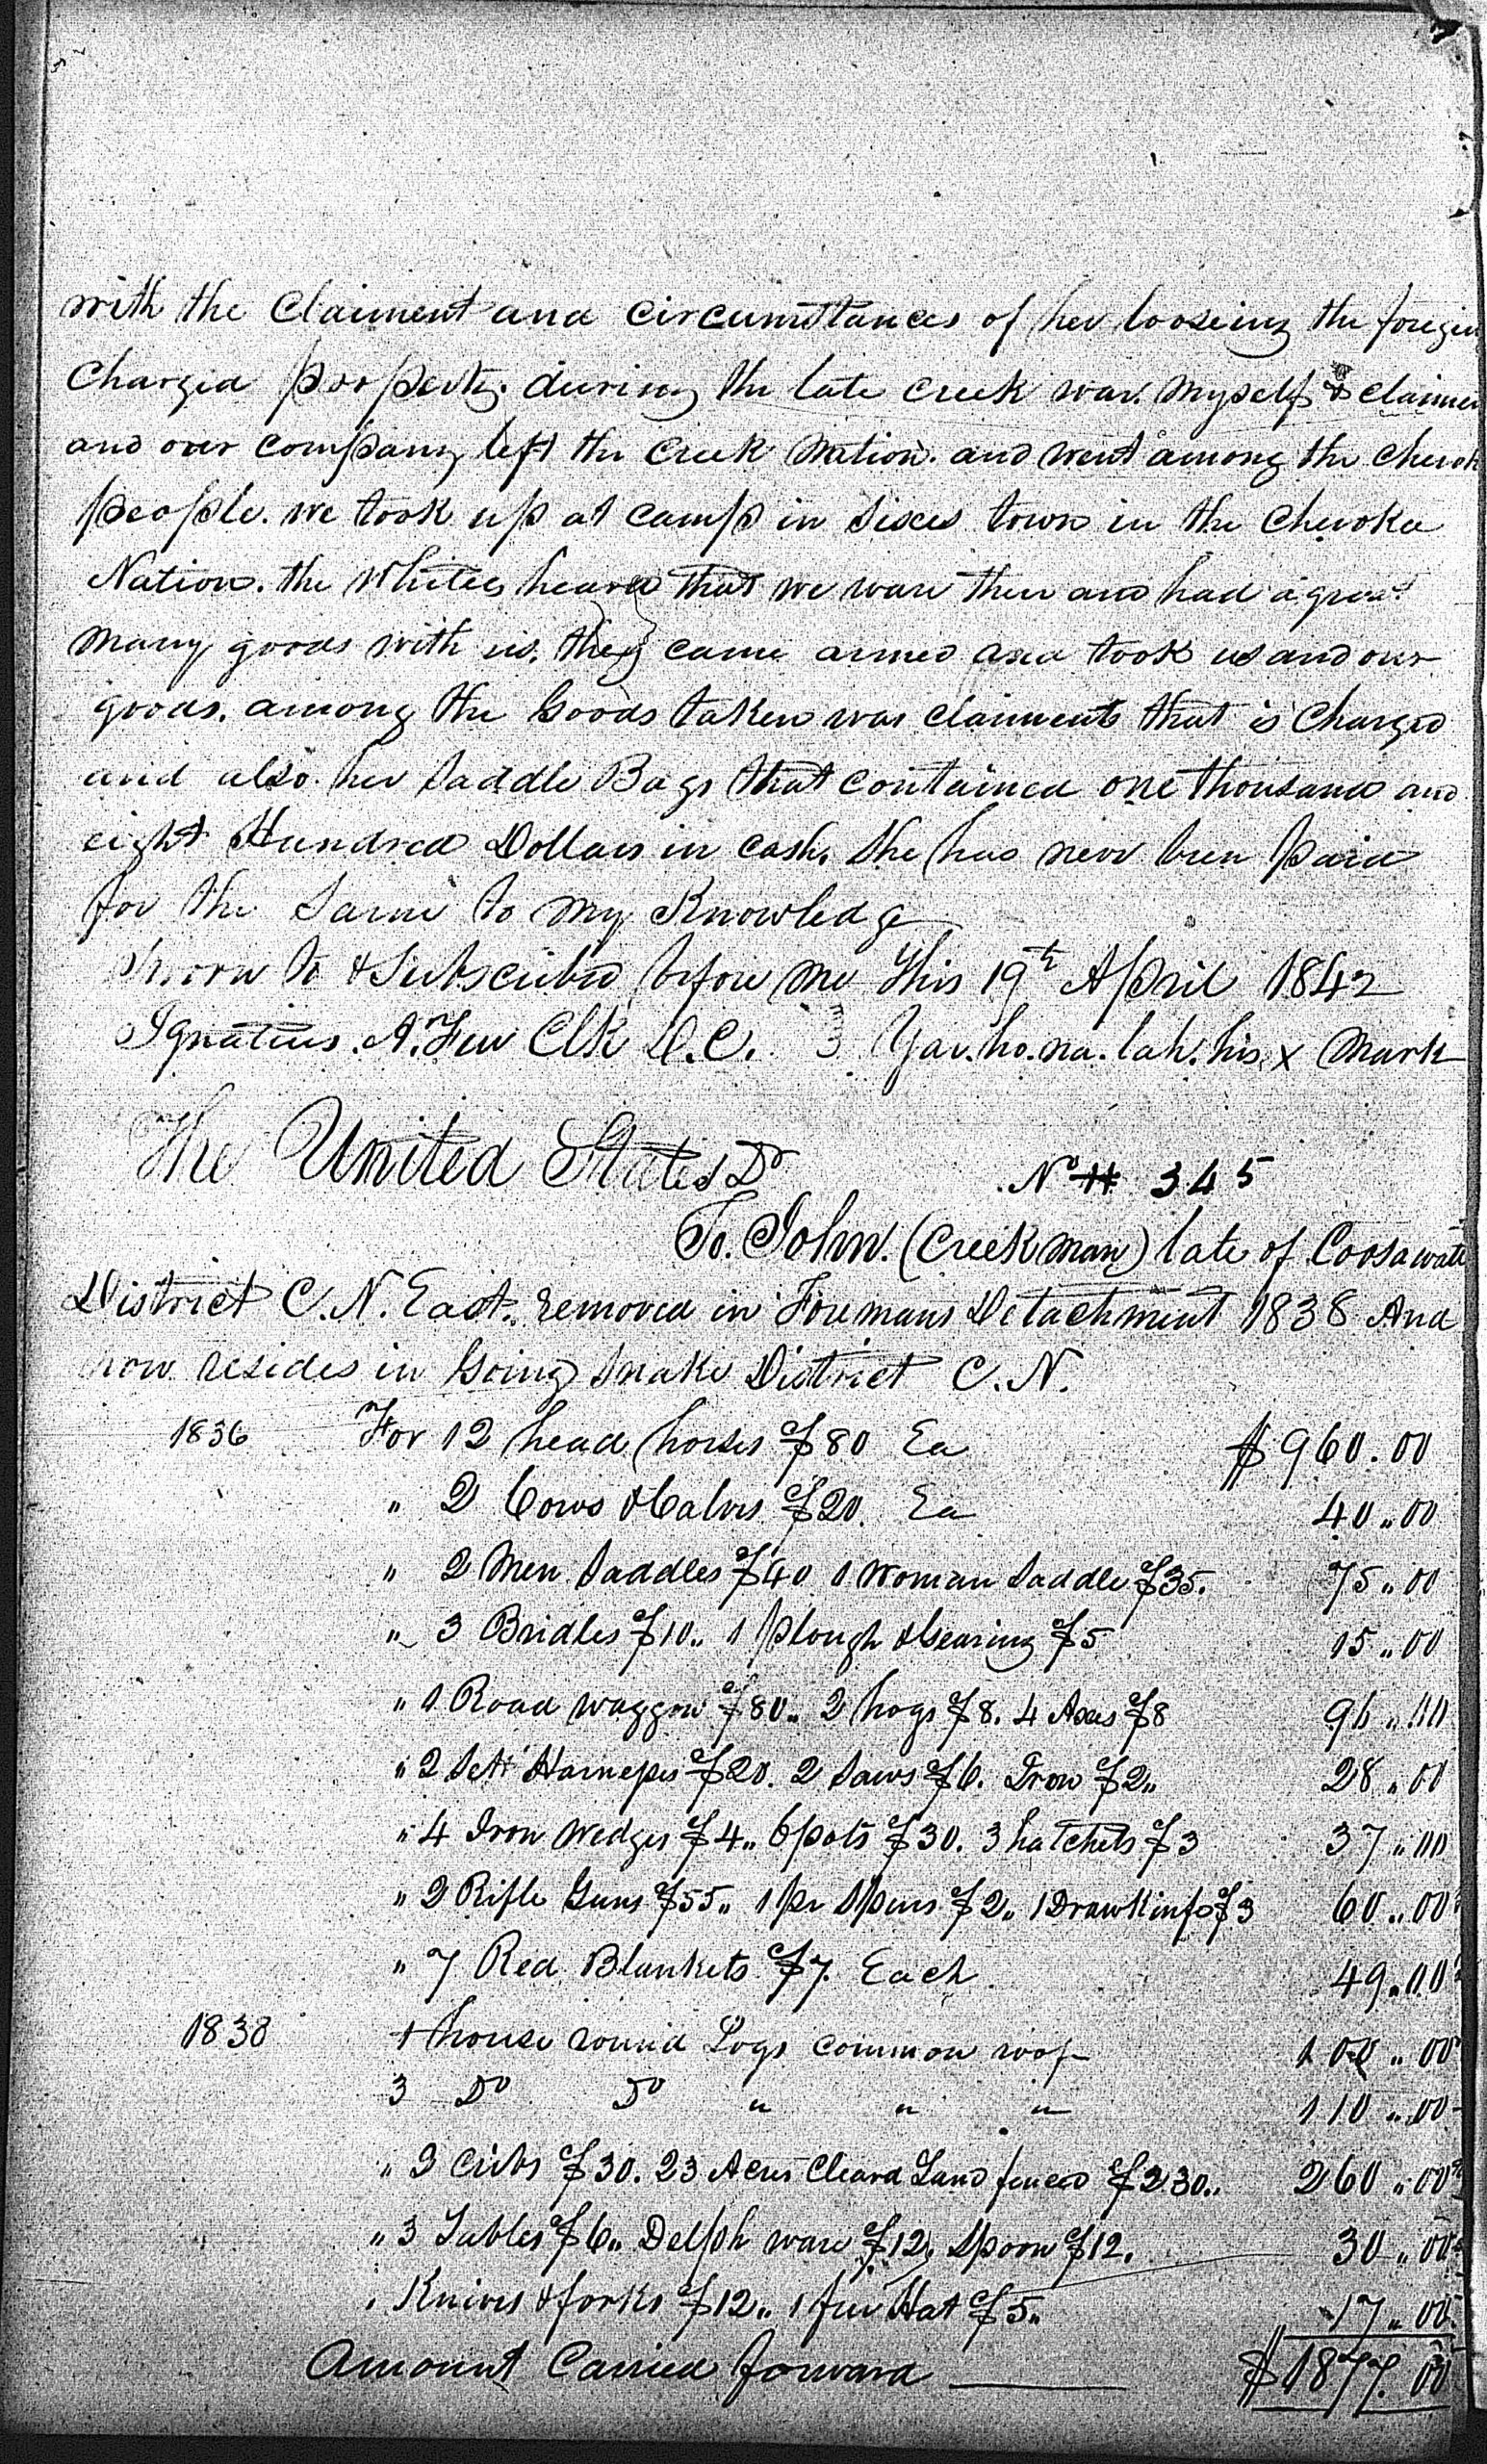 with the Claiment and circumstances of her looseing the foregin
Charged property during the late Creek war. Myself & claimen
and over company left the Creek Nation. and went among the Cherok
people. we took up at camp in Sixes town in the Cheroke
Nation. the Whites heard that we ware then and had a great
many goods with us. they came armed and took us and our
goods. among the Goods taken was claiments that is Charged
and also her Saddle Bags that contained one thousand and
eight Hundred Dollars in cash. She has never been paid
for the Same to my Knowledge
Sworn to & Subscribed before me this 19th April 1842
Ignatius. A. Few Clk D.C. } Yar.ho.na.lah. his x Mark
The United States Dr
No 345
To. John. (Creek man) late of Coosawate
District C. N. East. removed in Foremans Detachment 1838 And
now resides in Going Snake District C. N.
1836 For 12 head horses $80 Ea $960.00
" 2 Cows & Calves $20. Ea 40.00
" 2 Men Saddles $40 1 Woman Saddle $35. 75.00
" 3 Bridles $10.. 1 plough & Gearing $5 15.00
" 1 Road waggon $80.. 2 hogs $8. 4 Axes $8 96.00
" 2 Sett Harnesses $20. 2 Saws $6. Iron $2.. 28.00
" 4 Iron Wedges $4.. 6 pots $30. 3 hatchets $3 37.00
" 2 Rifle Guns $55.. 1 pr Spurs $2.. 1 Draw Kinfe $3 60.00
" 7 Red Blankets $7. Each 49.00
1838 1 house round Logs common roof 100.00
3 Do Do " " " 110.00
" 3 Cribs $30. 23 Acres Cleard Land fenced $230.. 260.00
" 3 Tables $6.. Delph ware $12, Spoon $12. 30.00
" Knives & forks $12.. 1 fur Hat $5.. 17.00
Amount Carried forward $1877.00